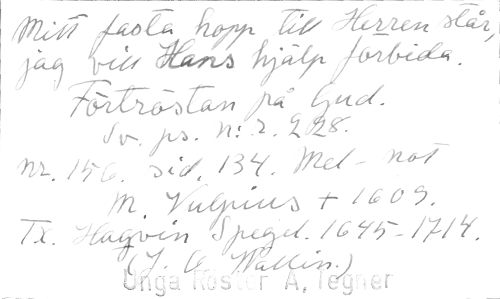 Mitt fasta hopp till Herren står,
jag vill Hans hjälp förbida.
Förtröstan på Gud.
Sv. ps. n:r. 228.
nr. 156. sid. 134. Mel-not
M. Vulpius + 1609.
Tx. Hagvin Spegel. 1645-1714.
(J. O. Wallin.)
Unga Röster A. Tegner